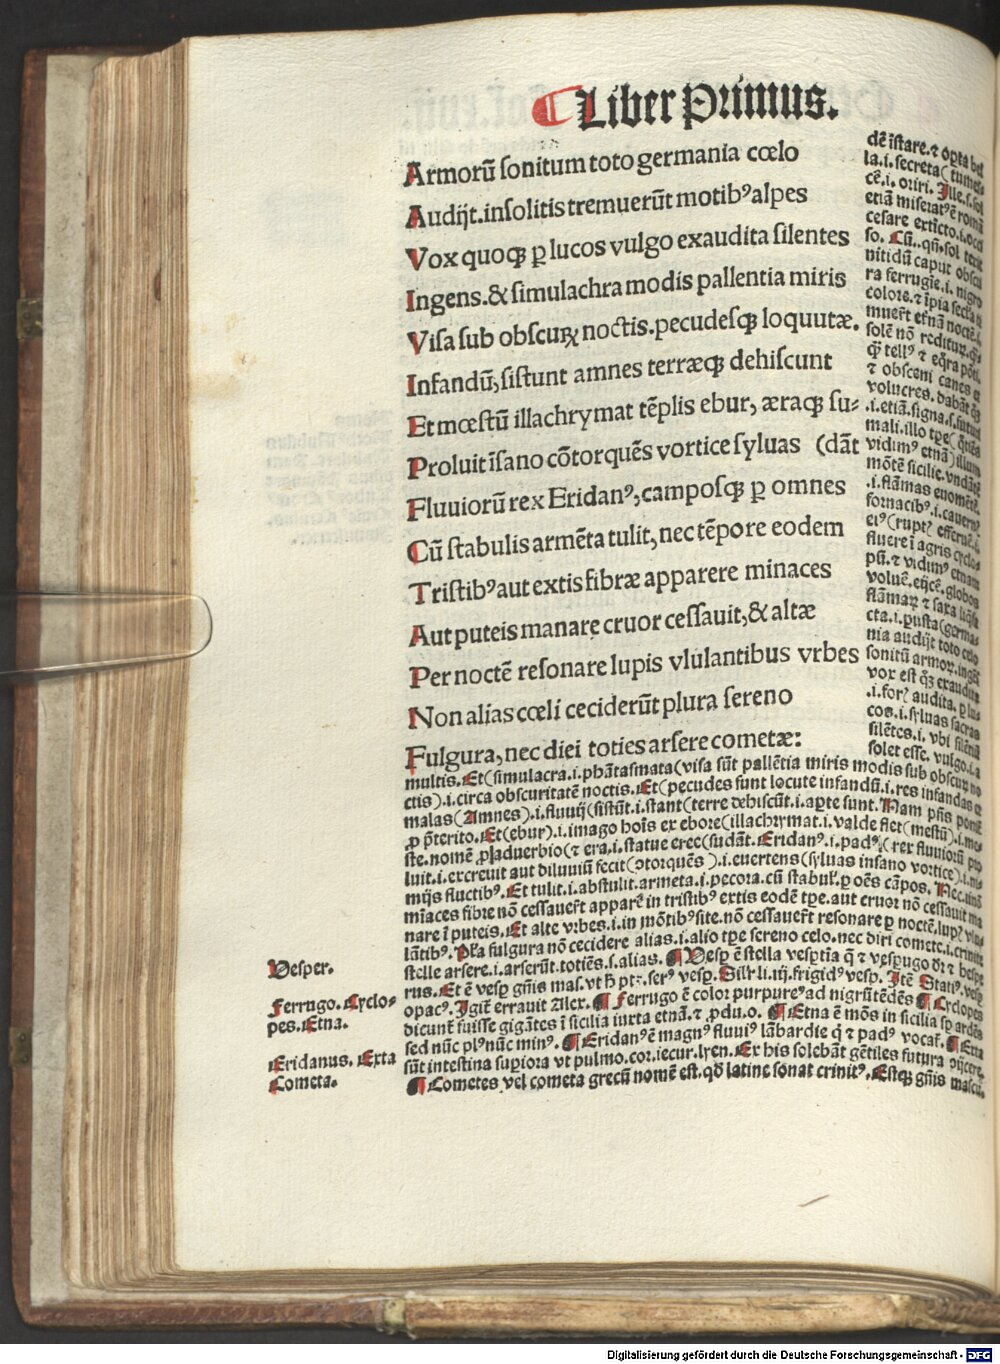 Liber Primus.
Armorū sonitum toto germania cœlo
Audijt.insolitis tremuerūt motibꝰ alpes
Vox quoqꝫ ꝑ lucos vulgo exaudita silentes
Ingens.& simulachra modis pallentia miris
Visa sub obscuꝝ noctis.pecudesqꝫ loquutæ.
Infandū,sistunt amnes terræqꝫ dehiscunt
Et mœstū illachrymat tēplis ebur, æraqꝫ su-
Proluit īsano cōtorquēs vortice syluas (dāt
Fluuiorū rex Eridanꝰ,camposqꝫ ꝑ omnes
Cū stabulis armēta tulit,nec tēpore eodem
Tristibꝰ aut extis fibræ apparere minaces
Aut puteis manare cruor cessauit,& altæ
Per noctē resonare lupis vlulantibus vrbes
Non alias cœli ceciderūt plura sereno
Fulgura,nec diei toties arsere cometæ:
dē istare.⁊ opta bel
la.i.secreta(tumes
cē.i.oriri. Ille.s.sol
etiā miseratꝰ ē romā
cesare extīcto.i.occi
so. Cū..qn̄.sol texit
nitidū caput obscu
ra ferrugīe.i.nigro
colore.⁊ īpia secla
muert̄ etnā noctē.i.
solē nō rediturꝫ.
qꝫ tellꝰ ⁊ eq̄ra pōti.
⁊ obsceni canes et
volucres. dabāt
.i.etiā.signa.s.futuri
mali.illo tpe(
vidimꝰ etnā illum
mōtē sicilie.vndātē
.i.flāmas euomētē.
fornacibꝰ.i.cauernꝭ
eiꝰ(ruptꝭ efferuē.i.
fluere ī agris cyclo
pū.⁊ vidimꝰ etnam
voluē.eijcē.globos
flāmaꝝ ⁊ saxa liq̄fa
cta.i.pusta(germa
nia audijt toto celo
sonitū armoꝝ.ingēs
vox est qꝫ exaudita
.i.fort̄ audita.ꝑ lu
cos.i.syluas sacras
silētes.i.vbi silētiū
solet esse. vulgo.i.a
multis. Et(simulacra.i.phātasmata(visa sūt pallētia miris modis sub obscurꝫ no
ctis).i.circa obscuritatē noctis. Et(pecudes sunt locute infandū.i.res infandas et
malas(Amnes).i.fluuij(sistūt.i.stant(terre dehiscūt.i.apte sunt. Nam pn̄s ponit̄
ꝓ p̄terito. Et(ebur).i.imago hoīs ex ebore(illachrymat.i.valde flet(mestū).i.me
ste.nomē ꝓ aduerbio(⁊ era.i.statue eree(sudāt. Eridanꝰ.i.padꝰ(rex fluuiorū pro
luit.i.excreuit aut diluuiū fecit(ꝯtorquēs).i.euertens(syluas insano vortice).i.ni
mijs fluctibꝰ. Et tulit.i.abstulit armeta.i.pecora.cū stabul̄.ꝑ oēs cāpos. Nec.
mīaces fibre nō cessauert̄ apparē in tristibꝰ extis eodē tpe.aut cruor nō cessauit ma
nare ī puteis. Et alte vrbes.i.in mōtibꝰ site.nō cessauert̄ resonare ꝑ noctē.lupꝭ vlu
lātibꝰ. Plꝛa fulgura nō cecidere alias.i.alio tpe sereno celo.nec diri comete.i.crinite
stelle arsere.i.arserūt.totiēs.s.alias. ¶ Vesp ē stella vesptīa q̄ ⁊ vespugo dr̄ ⁊ hespe
rus. Et ē vesp gn̄is mas.vt
opacꝰ. Igit̄ errauit Alex. ¶ Ferrugo ē color purpureꝰ ad nigrū tēdēs ¶ Cyclopes
dicunt̄ fuisse gigātes ī sicilia iuxta etnā.⁊ ꝓdu.o. ¶ Etna ē mōs in sicilia sp ardēs
sed nūc plꝰ nūc minꝰ. ¶ Eridanꝰ ē magnꝰ fluuiꝰ lābardie q̄ ⁊ padꝰ vocat̄. ¶ Exta
sūt intestina supiora vt pulmo.cor.iecur.lyen. Ex his solebāt gētiles futura ꝯijcere.
¶ Cometes vel cometa grecū nomē est.qđ latine sonat crinitꝰ. Estqꝫ gn̄is mascu.
Vesper.
Ferrugo. Cyclo-
pes. Etna.
Eridanus. Exta
Cometa.
Digitalisierung gefördert durch die Deutsche Forschungsgemeinschaft - DFG